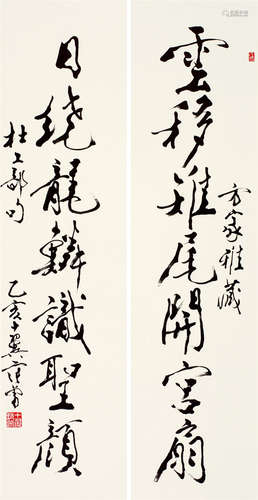 雲移雉尾開宮扇
方家雅藏
日繞龍鱗識聖顏
杜工部句
乙亥十翼范曾